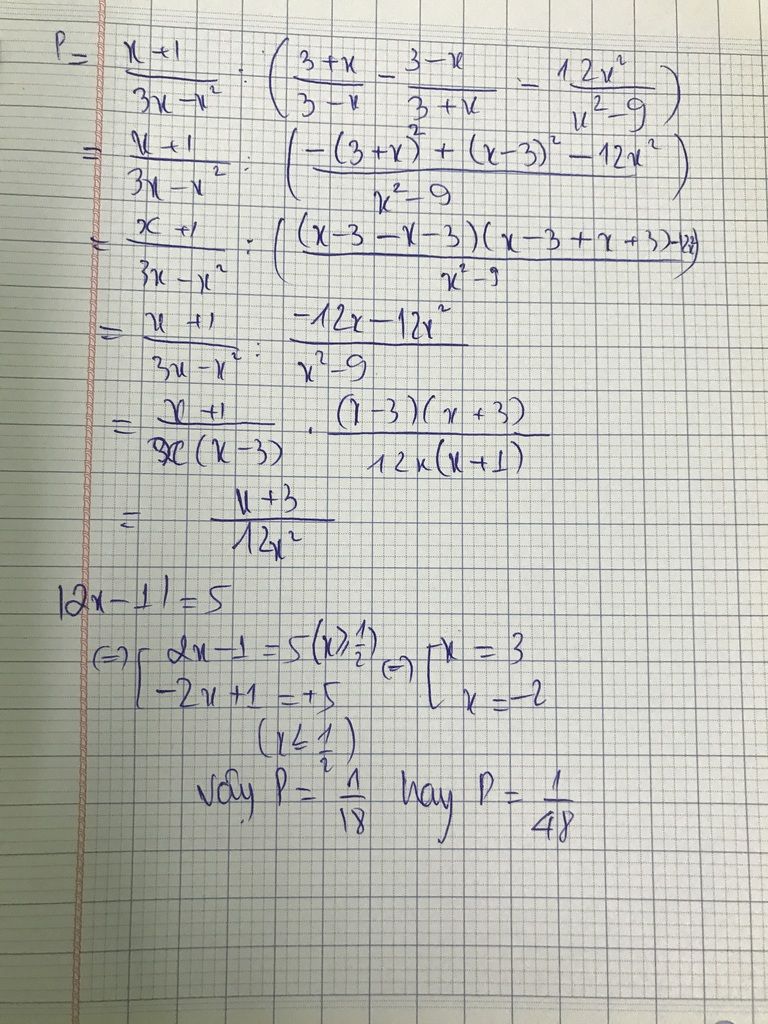 P = (x+1)/(3x-x²) : ((3+x)/(3-x) - (3-x)/(3+x) - 12x²/(x²-9))
= (x+1)/(3x-x²) : ((-(3+x)² + (x-3)² - 12x²)/(x²-9))
= (x+1)/(3x-x²) : (((x-3-x-3)(x-3+x+3)-12x²)/(x²-9))
= (x+1)/(3x-x²) : (-12x-12x²)/(x²-9)
= (x+1)/(x(x-3)) . ((x-3)(x+3))/(12x(x+1))
= (x+3)/(12x²)
|2x-1| = 5
(=) [ 2x-1 = 5 (x≥1/2) (=) [ x = 3
-2x+1 = +5 x = -2
(x≤1/2)
Vậy P = 1/18 hay P = 1/48